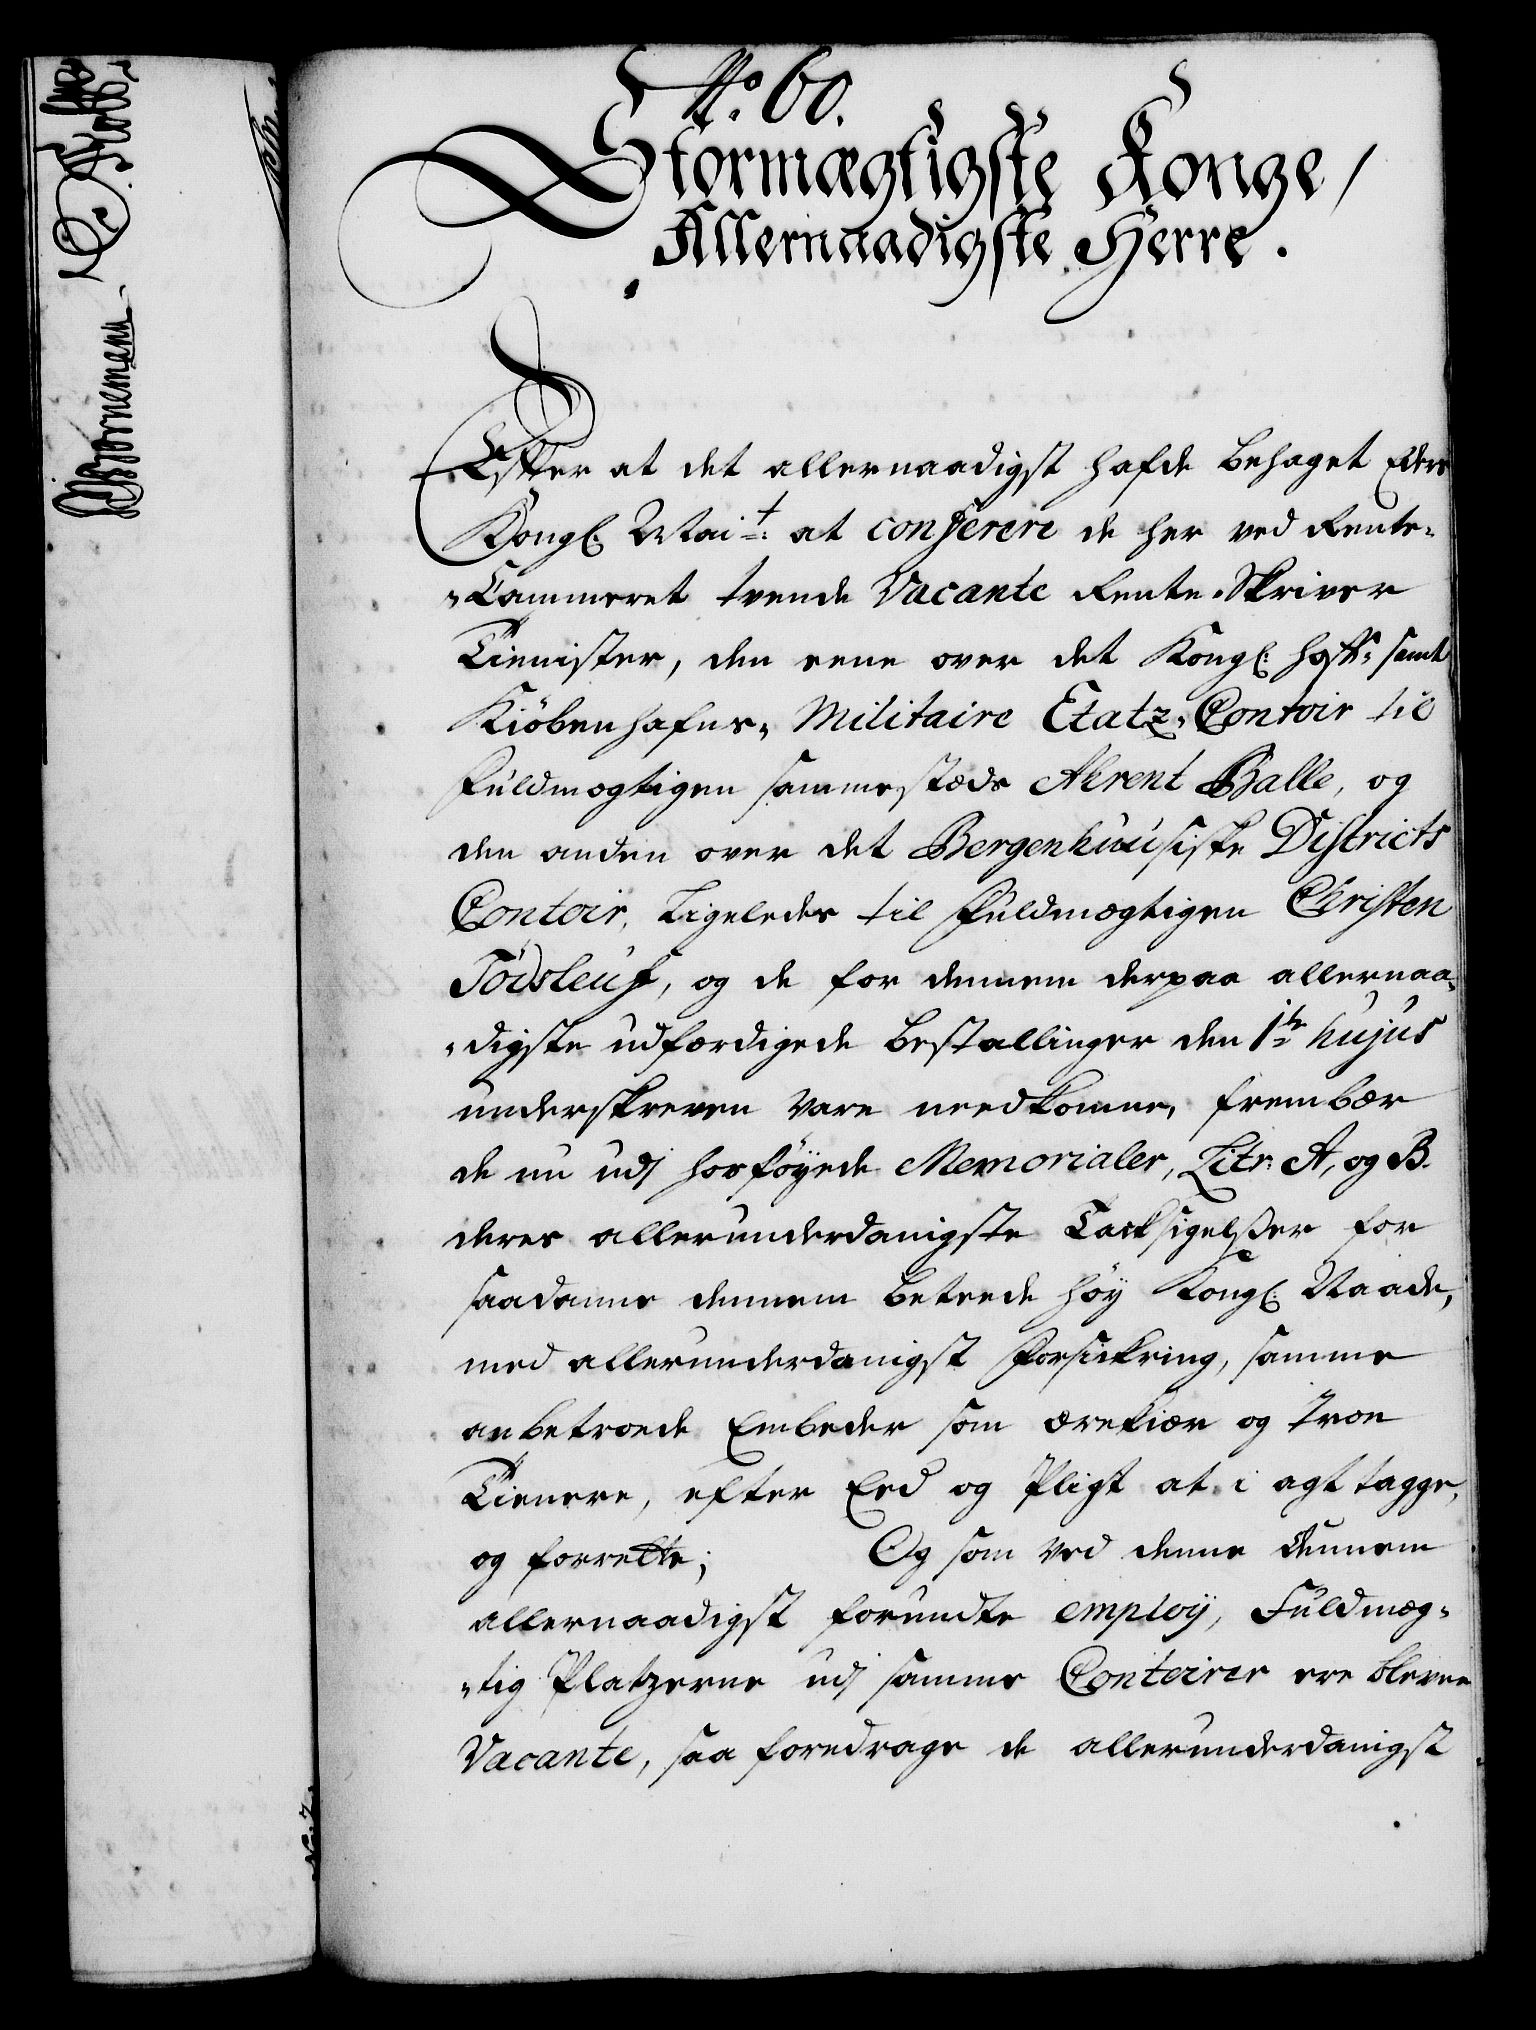 No. 60.
Stormægtigste Konge /
Allernaadigste Herre.
Efter at det allernaadigst hafde behaget Eders
Kongl: Mait: at conferere de her ved Rente-
-Cammeret tvende Vacante Rente-Skriver
Tienister, den eene over det Kongl: Hoff- samt
Kiöbenhafns- Militaire Etatz-Contoir til
Fuldmægtigen sammestæds Ahrent Balle, og
den anden over det Bergenhuusiske Districts
Contoir, Ligeledes til Fuldmægtigen Christen
Todsleuf, og de for dennem derpaa allernaa-
-digste udfærdigede bestallinger den 1te hujus
underskreven vare needkomne, frembær
de nu udj hosföyede Memorialer, Litr: A, og B.
deres allerunderdanigste Tacksigelßer for
saadanne dennem beteede höy Kongl: Naade,
med allerunderdanigst Forsickring, samme
anbetroede Embeder som ærekiær og troe
Tienere, efter Eed og Pligt at i agt tagge,
og forrette; Og som ved denne dennem
allernaadigst forundte employ, Fuldmæg-
-tig Platzerne udj samme Contoirer ere blevne
Vacante, saa foredrage de allerunderdanigst
Bornemann